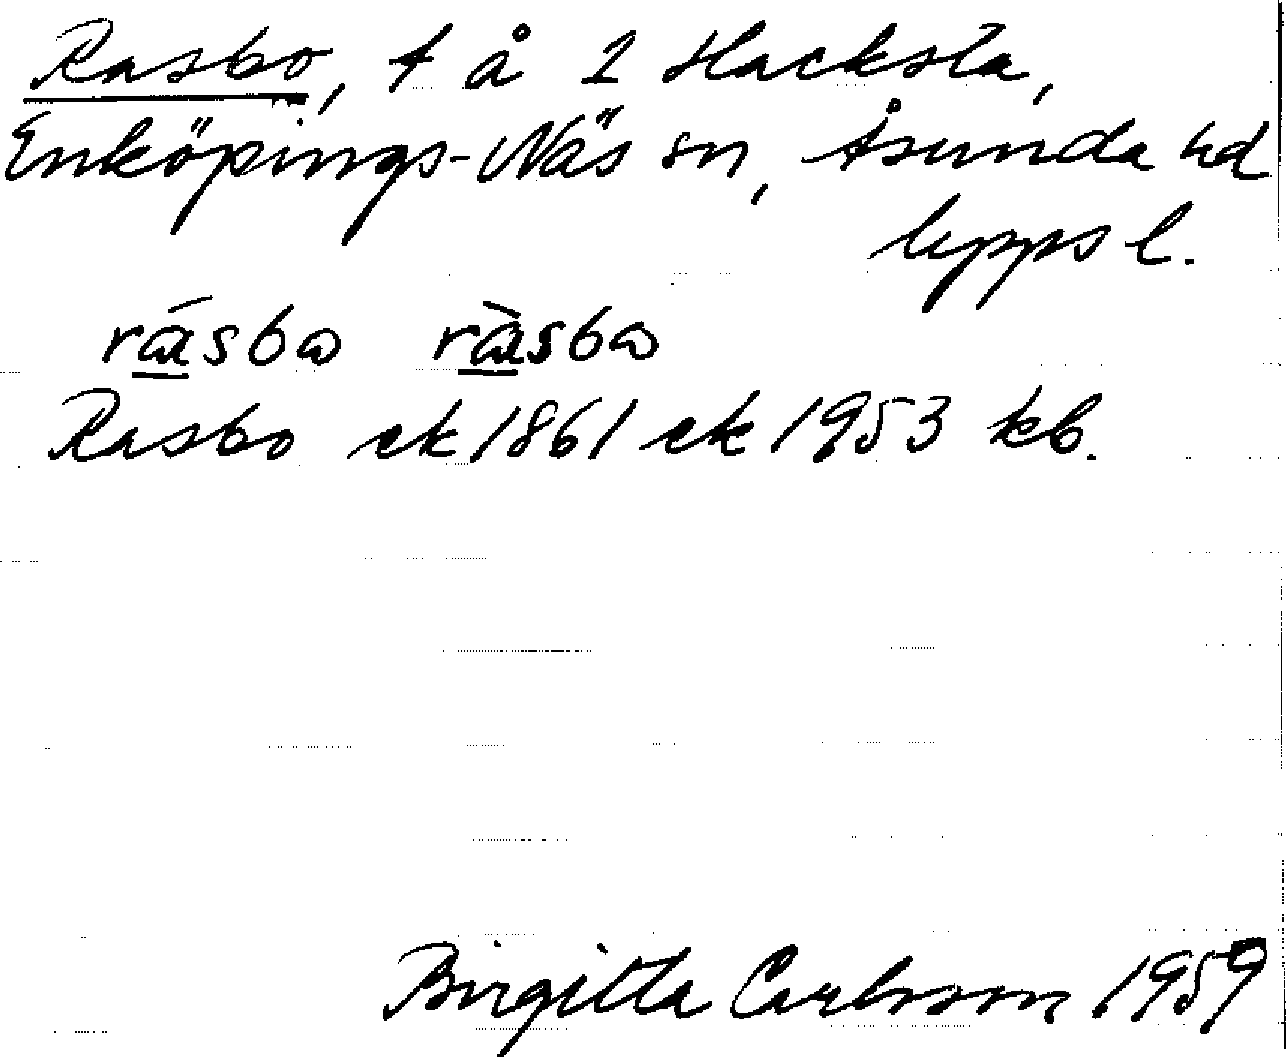 Rasbo, t å 2 Hacksta,
Enköpings-Näs sn, Åsunda hd
Upps l.
rásbω ràsbω
Rasbo ek 1861 ek 1953 kb.
Birgitta Carlsson 1959